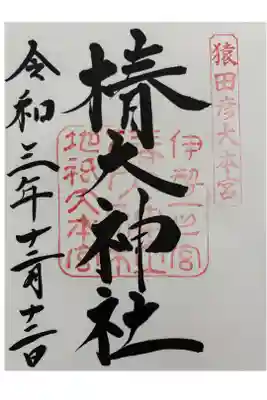 猿田彦大本宮
伊勢一之宮
椿大神社
地祇大本宮
令和三年十二月十二日